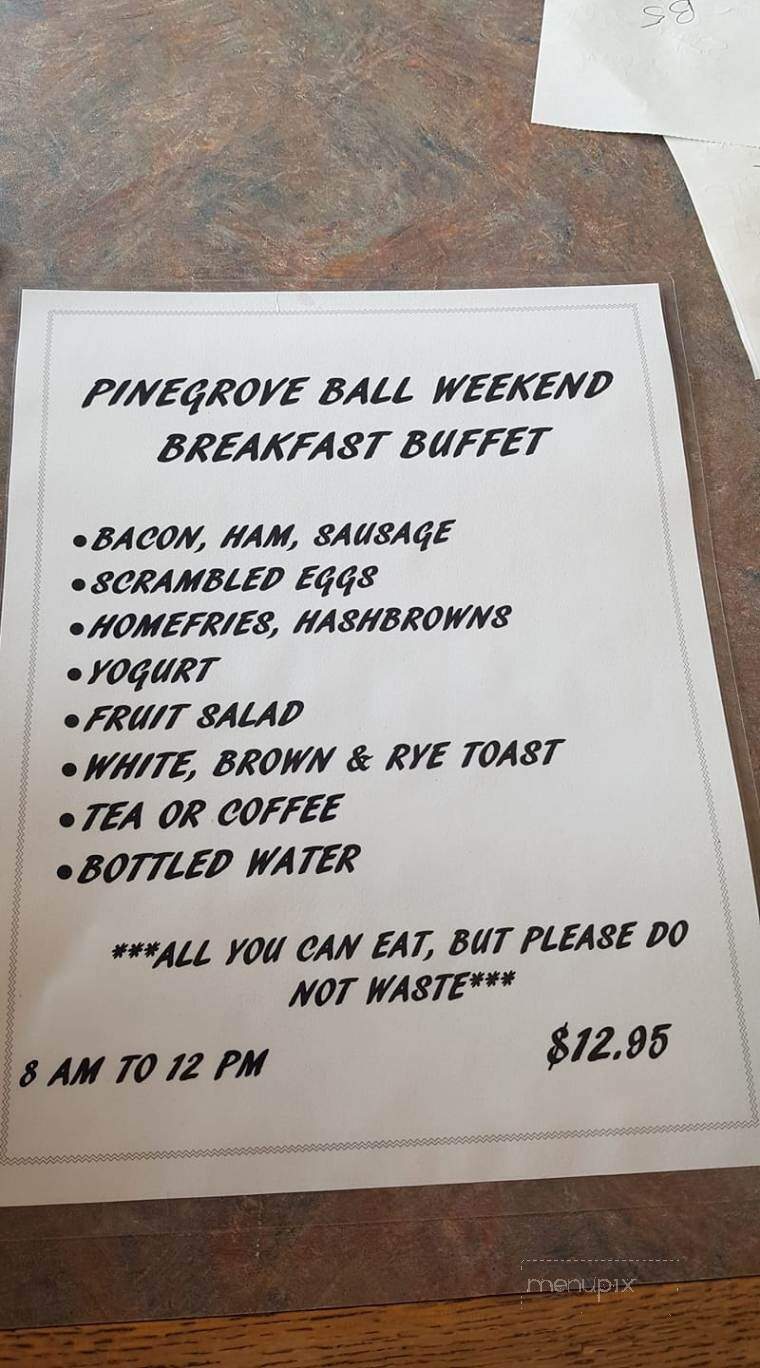 PINEGROVE BALL WEEKEND
BREAKFAST BUFFET
•BACON, HAM, SAUSAGE
•SCRAMBLED EGGS
•HOMEFRIES, HASHBROWNS
•YOGURT
•FRUIT SALAD
•WHITE, BROWN & RYE TOAST
•TEA OR COFFEE
•BOTTLED WATER
***ALL YOU CAN EAT, BUT PLEASE DO
NOT WASTE***
8 AM TO 12 PM
$12.95
menupix